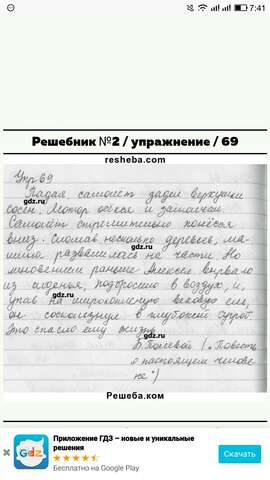 7:41
Решебник №2 / упражнение / 69
resheba.com
Упр 69
Падая самолет задел верхушки
gdz.ru
gdz.ru
сосен. Мотор осёкся и замолчал.
Самолёт стремительно понёсся
вниз. Сломав несколько деревьев, ма-
шина развалилась на части. Но
мгновением раньше Алексея вырвало
gdz.ru
из сиденья, подбросило в воздух, и,
упав на широкоплечую вековую ель,
gdz.ru
он соскользнул в глубокий сугроб.
Это спасло ему жизнь.
gdz.ru
Б. Полевой ("Повесть
о настоящем челове-
ке")
Решеба.ком
Gdz
Приложение ГДЗ – новые и уникальные
решения
Бесплатно на Google Play
Скачать